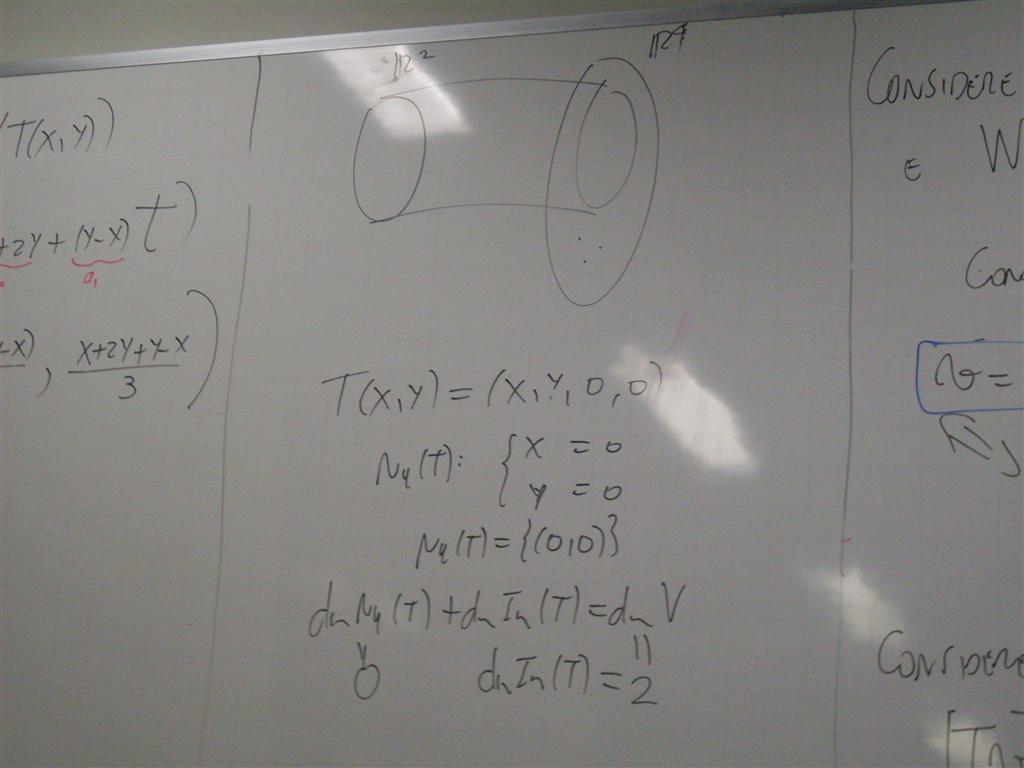 T(X,Y))
+2Y + (Y-X) t)
a₁
-X) , X+2Y+Y-X / 3 )
ℝ² ℝ⁴
T(X,Y) = (X,Y,0,0)
Nu(T): { X = 0
Y = 0
Nu(T) = {(0,0)}
dim Nu(T) + dim Im(T) = dim V
0 dim Im(T) = 2
CONSIDERE
E W
CON
v =
CONSIDERE